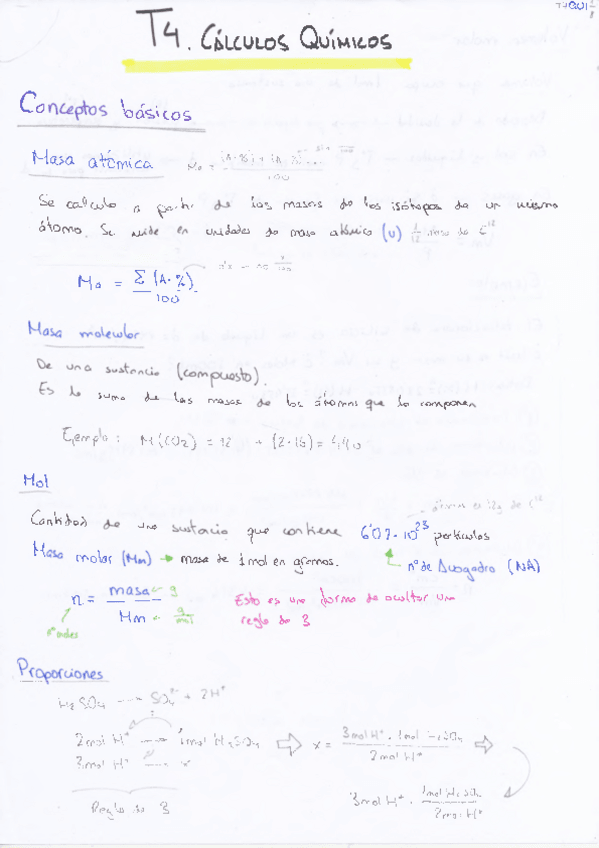 T4. CÁLCULOS QUÍMICOS
Conceptos básicos
Masa atómica
100
Se calcula a partir de las masas de los isótopos de un mismo
átomo. Se mide en unidades de masa atómica (u) 1/12 masa de C¹²
Ma = Σ (A·%) / 100
Masa molecular
De una sustancia (compuesto).
Es la suma de las masas de los átomos que la componen
Ejemplo: M(CO₂) = 12 + (2·16) = 44u
Mol
en 12g de C¹²
Cantidad de una sustancia que contiene 6'02·10²³ partículas
Masa molar (Mm) → masa de 1mol en gramos.
nº de Avogadro (NA)
n = masa ← g / Mm ← g/mol
nº moles
Esto es una forma de ocultar una
regla de 3
Proporciones
H₂SO₄ → SO₄²⁻ + 2H⁺
2mol H⁺ → 1mol H₂SO₄ ⇒ x = 3mol H⁺ · 1mol H₂SO₄ / 2mol H⁺ ⇒
3mol H⁺ → x
Regla de 3
3mol H⁺ · 1mol H₂SO₄ / 2mol H⁺